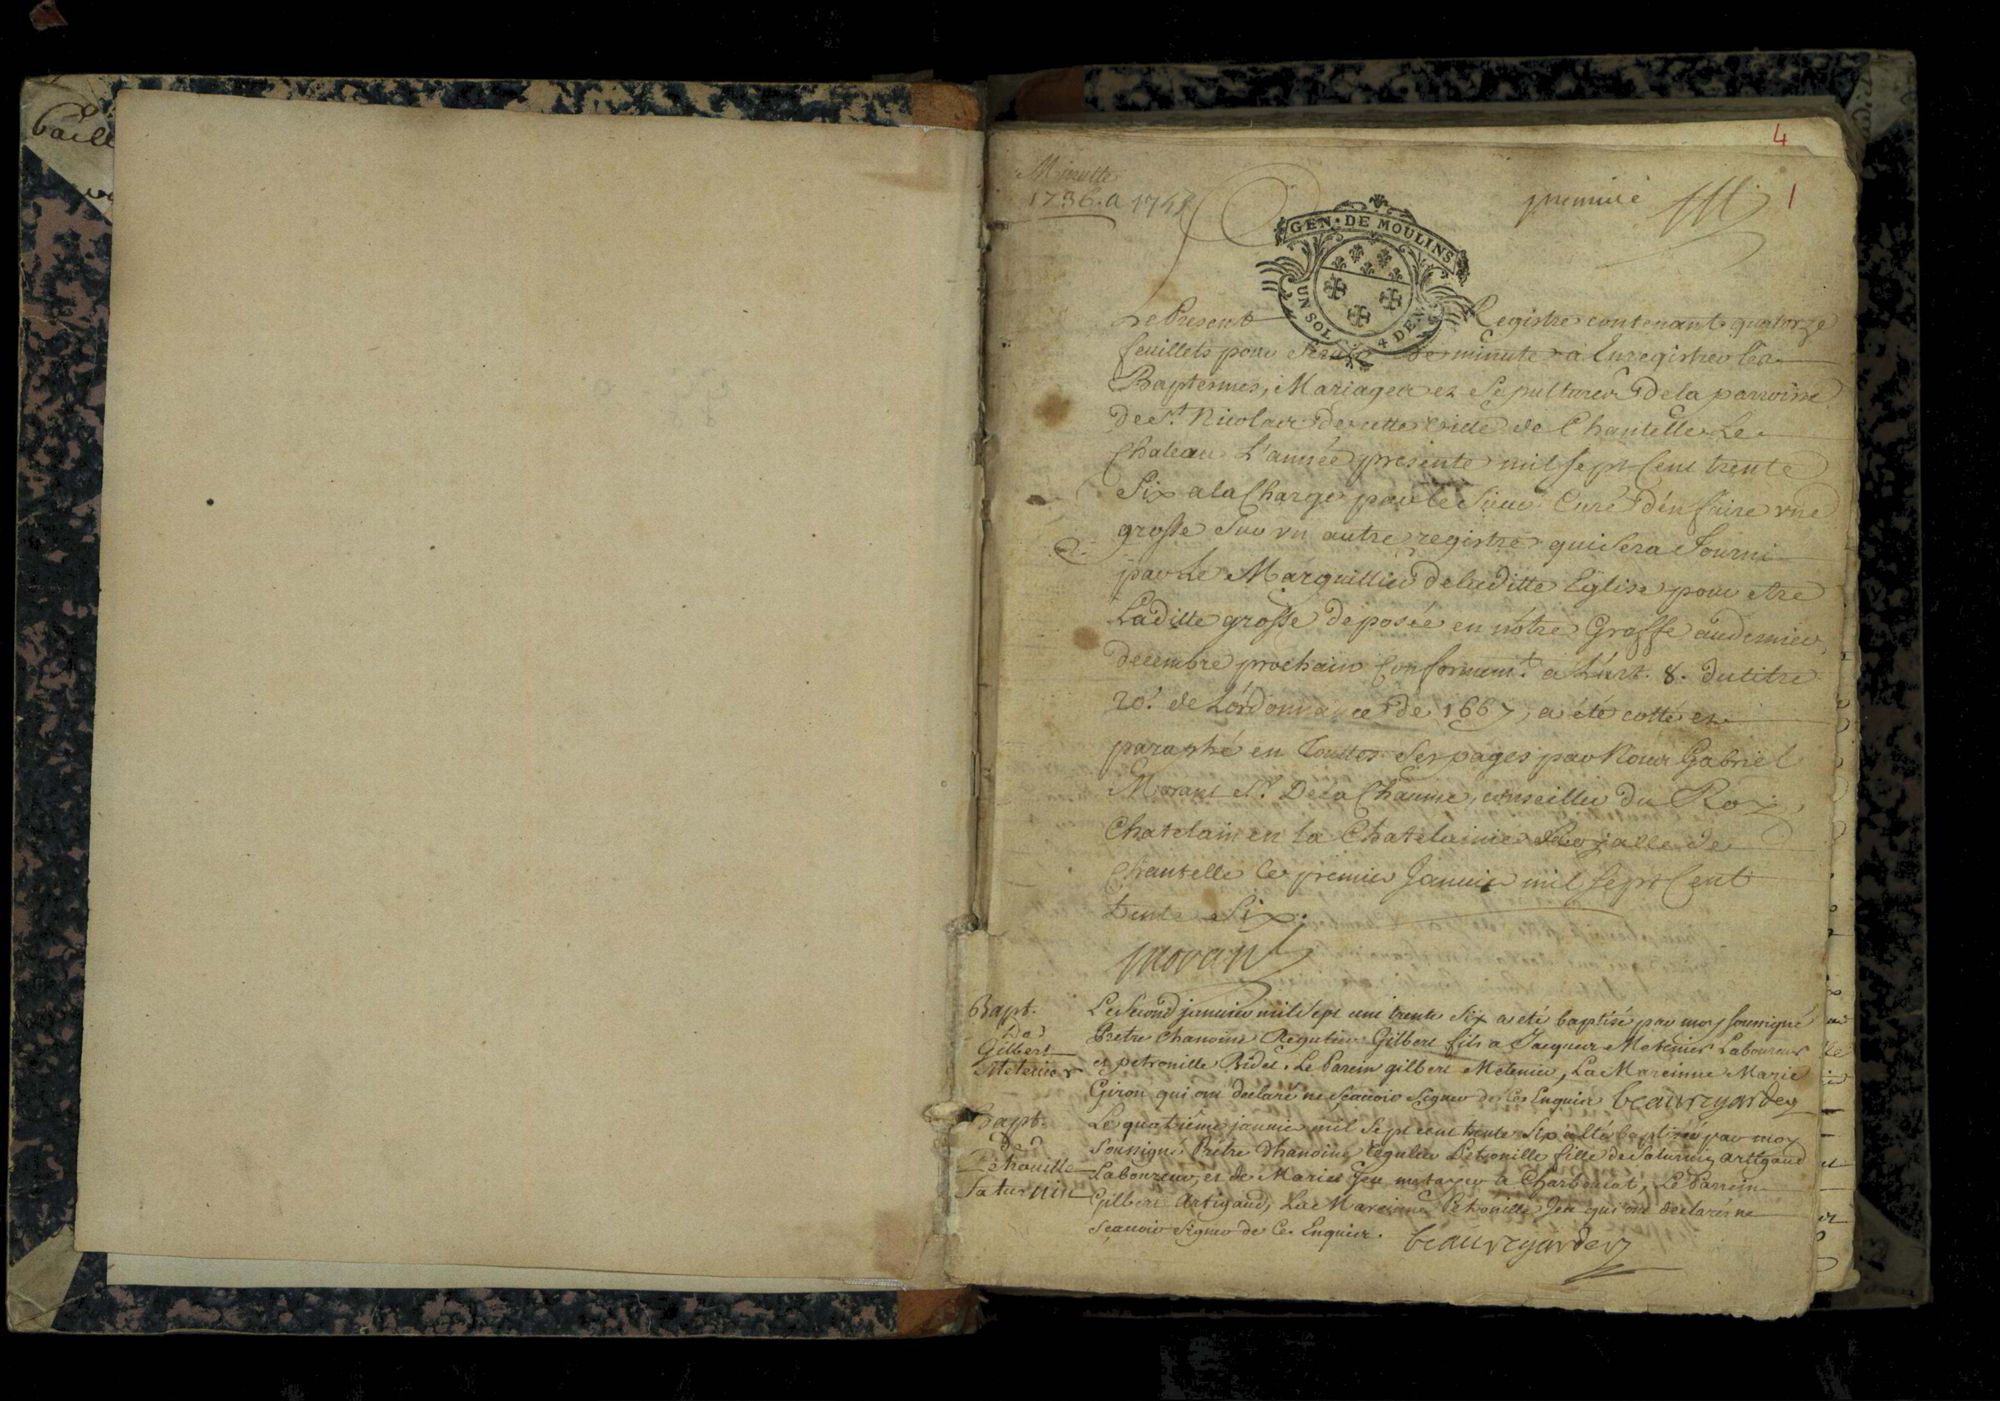 4
Minutte
1736. a 1748
premier
1
GEN. DE MOULINS
UN SOL 4 DEN.
Le Present Registre contenant quatorze
feuillets pour Servir de minute a Enregistrer les
Baptesmes, Mariages et Sepultures de la parroisse
de St. Nicolas de cette ville de Chantelle Le
Chateau L'année presente mil sept Cent trente
Six a la Charge par le Sieur Curé d'en faire vne
grosse sur vn autre registre qui sera fourni
par Le Marguillier de laditte Eglise pour etre
Laditte grosse deposée en nôtre Greffe au dernier
decembre prochain Conformemt. a L'art. 8. du titre
20. de L'ordonnance de 1667, a été cotté et
paraphé en touttes ses pages par Nous Gabriel
Morant Sr. De la Chaume, conseiller du Roy,
Chatelain en la Chatelainie Royalle de
Chantelle le premier Janvier mil sept Cent
trente Six.
Morant
Bapt.
de
Gilbert
Metenier
Le Second janvier mil sept cent trente Six a été baptisé par moy soussigné
Pretre Chanoine Regulier Gilbert fils a Jacques Metenier Laboureur
et petronille Bidet. Le Parein gilbert Metenier, La Mareinne Marie
Giron qui ont declaré ne Sçauoir Signer de Ce Enquis beauregardey
Bapt.
de
Petronille
Saturnin
Le quatriéme janvier mil Sept cent trente Six a été baptisée par moy
Soussigné Prêtre Chanoine regulier Petronille fille de Saturnin Arttgaud
Laboureur, et de Marie Jeu metayer a Charboniat, Le Parrein
Gilbert Artigaud, La Mareinne Petronille Jeu qui ont declaré ne
Sçauoir Signer de Ce Enquis. beauregardey